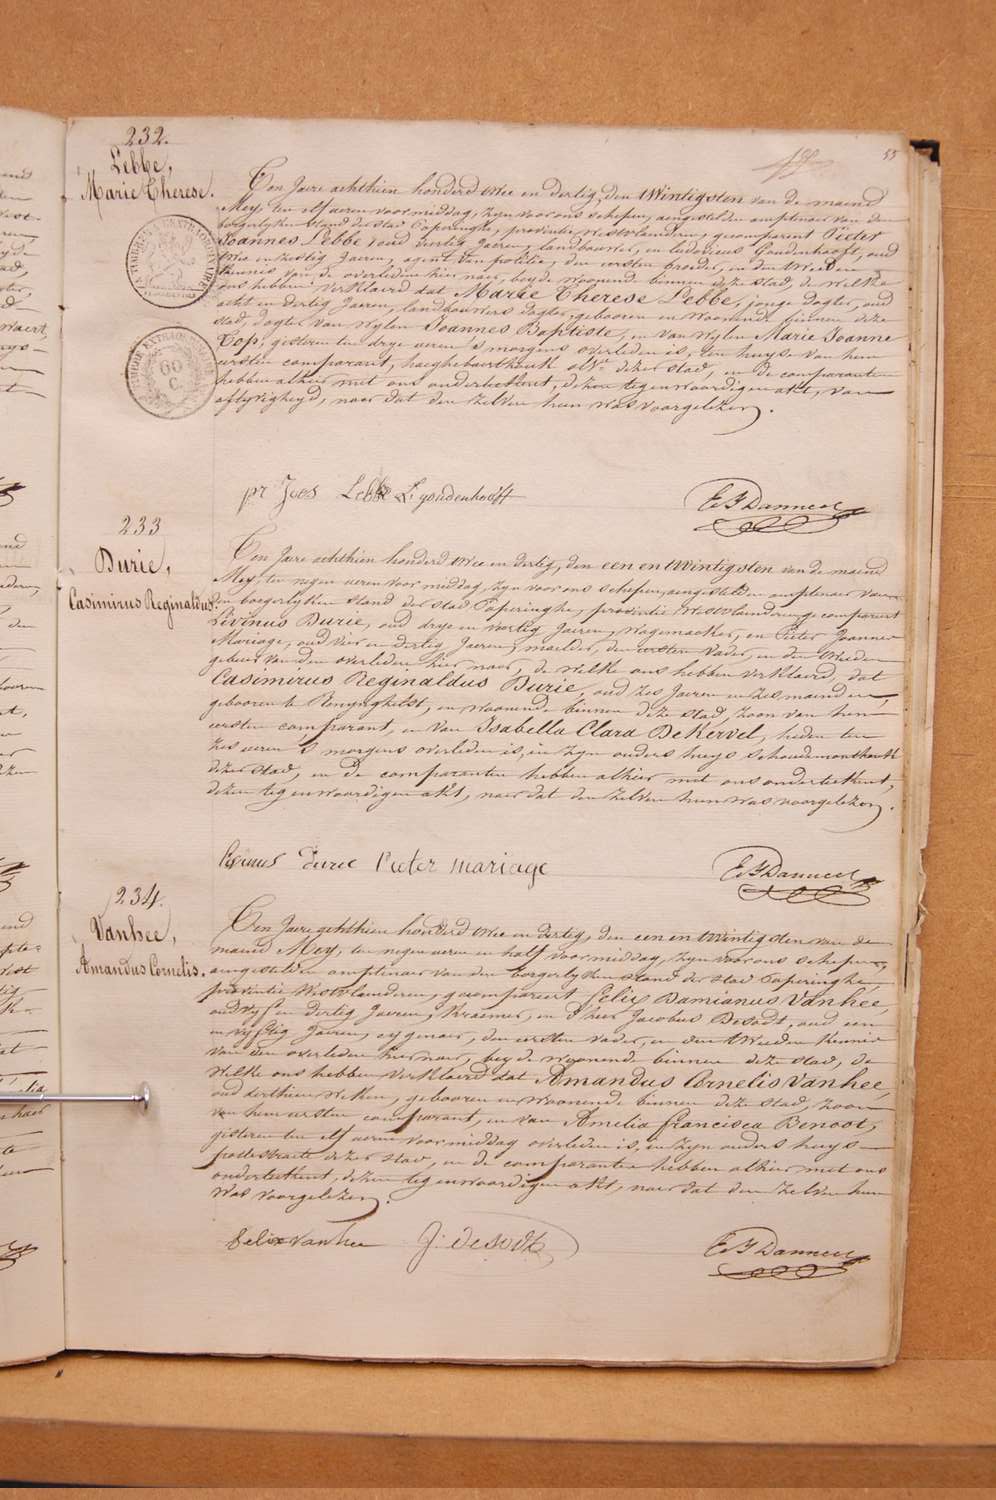 55
232.
Lebbe,
Marie Therese.
Ten Jaere achthien honderd twee en dertig, den twintigsten van de maend
Mey, ten elf ueren voormiddag, zyn voor ons schepen, aengestelden amptenaer van den
borgerlyken stand der stad Poperinghe, provintie Westvlaenderen, gecompareert Pieter
Joannes Lebbe oud dertig Jaeren, landbouwer, en Ludovicus Goudenhooft, oud
twee en zestig Jaeren, agent van politie, den eersten broeder, en den tweeden
kennis van de overleden hier naer, beyde woonende binnen deze stad, de welke
ons hebben verklaerd dat Marie Therese Lebbe, jonge dogter, oud
acht en dertig Jaeren, landbouwers dogter, gebooren en woonende binnen deze
stad, dogter van wylen Joannes Baptiste, en van wylen Marie Joanne
Top, gisteren ten drye ueren 's morgens overleden is, ten huyse van hun
eersten comparant, haeghebaerthouk dezer stad, en de comparanten
hebben alhier met ons onderteekent, dezen tegenwoordigen akt, van
aflyvigheyd, naer dat den zelven hun was voorgelezen.
60
C.
pr Joes Lebbe L goudenhooft
233
Durie,
Casimirus Reginaldus.
Ten Jaere achthien honderd twee en dertig, den een en twintigsten van de maend
Mey, ten negen ueren voor middag, zyn voor ons schepen, aengestelden amptenaer van
den borgerlyken stand der stad Poperinghe, provintie Westvlaenderen, gecompareert
Livinus Durie, oud drye en veertig Jaeren, wagemaeker, en Pieter Joannes
Mariage, oud vier en dertig Jaeren, maelder, den eersten vader, en den tweeden
gebuer van den overleden hier naer, de welke ons hebben verklaerd, dat
Casimirus Reginaldus Durie, oud zes Jaeren en zes maenden,
gebooren te Renynghelst, en woonende binnen deze stad, zoon van hun
eersten comparant, en van Isabella Clara DeKervel, heden ten
zes ueren 's morgens overleden is, in zyn ouders huys schoudemonthouk
dezer stad, en de comparanten hebben alhier met ons onderteekent,
dezen tegenwoordigen akt, naer dat den zelven hun was voorgelezen.
durie Pieter mariage
234.
Vanhee,
Amandus Cornelis.
Ten Jaere achthien honderd twee en dertig, den een en twintigsten van de
maend Mey, ten negen ueren en half voor middag, zyn voor ons schepen,
aengestelden amptenaer van den borgerlyken stand der stad Poperinghe,
provintie Westvlaenderen, gecompareert Felix Damianus Vanhée,
oud vyf en dertig Jaeren, kraemer, en d'heer Jacobus Desodt, oud een
en vyftig Jaeren, eygenaer, den eersten vader, en den tweeden kennis
van den overleden hier naer, beyde woonende binnen deze stad, de
welke ons hebben verklaerd dat Amandus Cornelis Vanhée,
oud derthien weken, gebooren en woonende binnen deze stad, zoon
van hun eersten comparant, en van Amelia francisca Benoot,
gisteren ten elf ueren voor middag overleden is, in zyn ouders huys
pottestraete dezer stad, en de comparanten hebben alhier met ons
onderteekent, dezen tegenwoordigen akt, naer dat den zelven hun
was voorgelezen.
felix vanhee J. desodt